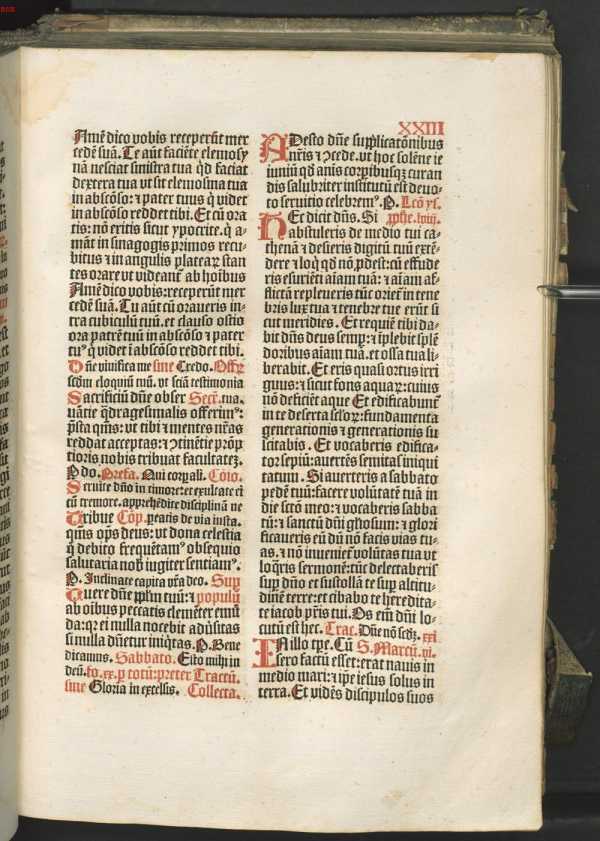 XXIII
Amē dico vobis receperūt mer
cedē suā. Te aūt faciēte elemosy
nā nesciat sinistra tua qd faciat
dextera tua ut sit elemosina tua
in abscōso: ⁊ pater tuus q̇ videt
in abscōso reddet tibi. Et cū ora
tis: nō eritis sicut ypocrite. q̇ a-
māt in sinagogis primos recu-
bitus ⁊ in angulis plateaꝝ stan
tes orare ut videant᷑ ab hoībus
Amē dico vobis: receperūt mer
cedē suā. Tu aūt cū oraveris in-
tra cubiculū tuū. et clauso ostio
ora patrē tuū in abscōso ⁊ pater
tu⁹ q̇ videt ī abscōso reddet tibi.
Dñe vivifica me sine Credo. Offꝝ
scdm eloquiū tuū. vt sciā testimonia
Sacrificiū dñe obser Secꝝ. tua.
vātie q̄dragesimalis offerim⁹:
p̄sta q̄ms: vt tibi ⁊ mentes n̄ras
reddat acceptas: ⁊ ↄtinētie p̄ōp
tioris nobis tribuat facultateꝫ.
P̄ Do. Prefa. Qui corpali. Cōio.
Servite dn̄o in timore: et exultate ei
cū tremore. apprehēdite disciplinā ne
Tribue Cōp̄. pereatis de via iusta.
q̄ms op̄s deus: vt dona celestia
q̄ debito frequētam⁹ obsequio
salutaria nob̄ iugiter sentiam⁹.
P̄. Inclinate capita vr̄a deo. Sup
Tuere dn̄e pplm tuū: ⁊ populū
ab oībus peccatis clemēter emū
da: qꝛ ei nulla nocebit adūsitas
si nulla dn̄etur iniq̇tas. P̄. Bene
dicamus. Sabbato. Esto mihi in
deū. fo. xx. p totū: preter Tractū.
sine Gloria in excelsis. Collecta.
ADesto dn̄e supplicatōnibus
nr̄is ⁊ ↄcede. ut hoc solēne ie
iuniū qd anis corpibusqꝫ curan
dis salubriter institutū est devo-
to servitio celebrem⁹. P̄. Lcō ys.
HEc dicit dn̄s. Si pphe. lviij.
abstuleris de medio tui ca-
thenā ⁊ desieris digitū tuū extē-
dere ⁊ loq̇ qd nō pdest: cū effude
ris esuriēti aīam tuā: ⁊ aīam af-
flictā repleveris tūc oriet᷑ in tene
bris lux tua ⁊ tenebre tue erūt si
cut meridies. Et requiē tibi da-
bit dn̄s deus semp: ⁊ īplebit splē
doribus aīam tuā. et ossa tua li-
berabit. Et eris quasi ortus irri
guus: ⁊ sicut fons aquaꝝ: cuius
nō deficiēt aque Et edificabunt᷑
in te deserta seloꝝ: fundamenta
generationis ⁊ generationis su
scitabis. Et vocaberis edifica-
tor sepiū: avertēs semitas iniqui
tatum. Si averteris a sabbato
pedē tuū: facere volūtatē tuā in
die sctō meo: ⁊ vocaberis sabba
tū: ⁊ sanctū dn̄i gl̄iosum: ⁊ glori
ficaveris eū dū nō facis vias tu-
as. ⁊ nō inveniet᷑ volūtas tua vt
loq̄ris sermonē: tūc delectaberis
sup dn̄o et sustollā te sup altitu-
dinē terre: et cibabo te heredita-
te iacob pr̄is tui. Os em̄ dn̄i lo-
cutū est hec. Trac. Dn̄e nō scdꝫ. xxi
IN illo tpe. Cū S. Marcū. vi.
sero factū esset: erat navis in
medio mari: ⁊ ipe iesus solus in
terra. Et vidēs discipulos suos